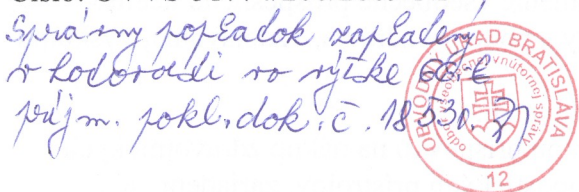 Správny poplatok zaplatený
v hotovosti vo výške 66.€
príjm. pokl. dok. č. 18530.
OBVODNÝ ÚRAD BRATISLAVA
odbor všeobecnej vnútornej správy
12